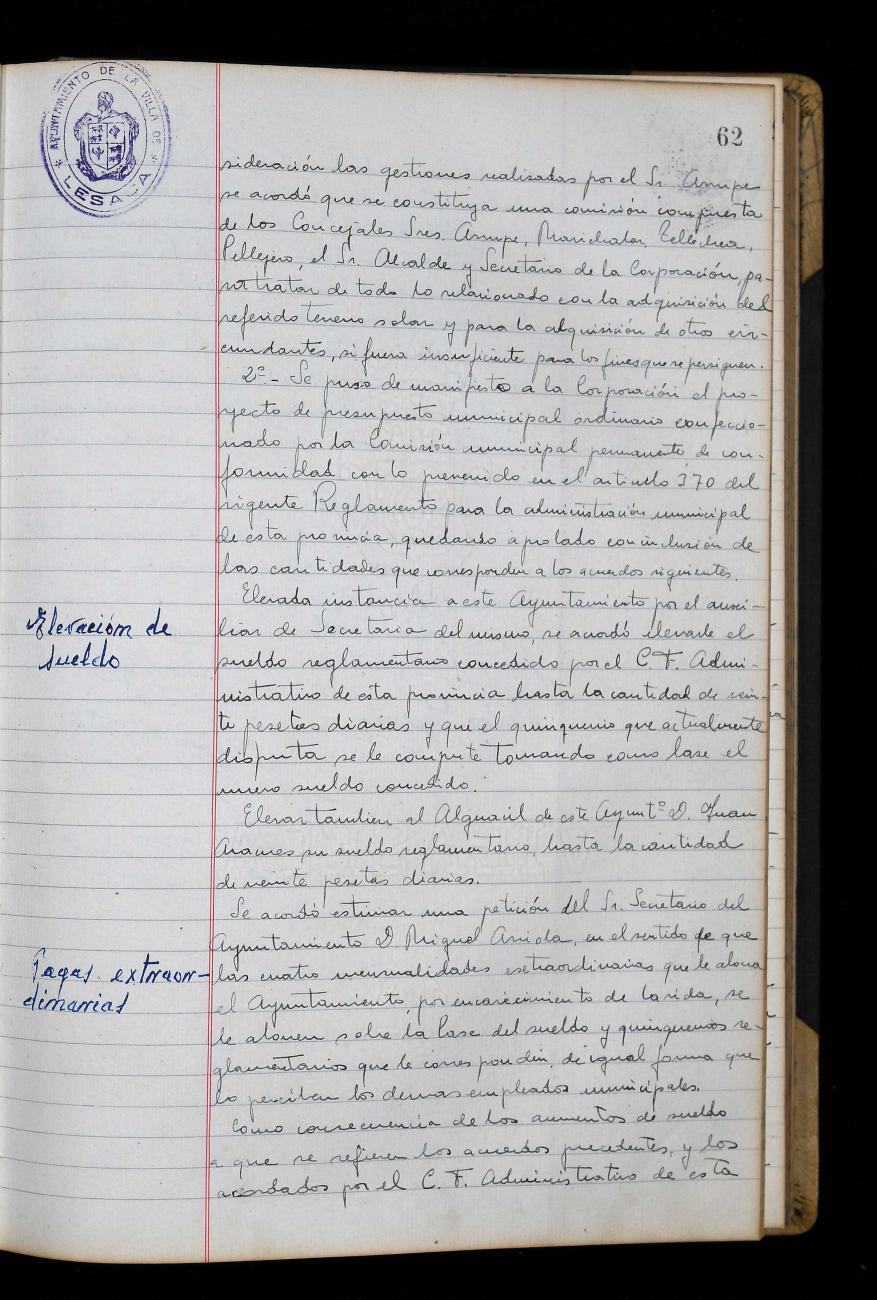 AYUNTAMIENTO DE LA VILLA DE
* LESACA *
62
sideración las gestiones realizadas por el Sr. Arrupe
se acordó que se constituya una comisión compuesta
de los Concejales Sres. Arrupe, Marichalar, Tellechea,
Pellejero, el Sr. Alcalde y Secretario de la Corporación, pa-
ra tratar de todo lo relacionado con la adquisición del
referido terreno solar y para la adquisición de otros cir-
cundantes, si fuera insuficiente para los fines que se persiguen.
2º - Se puso de manifiesto a la Corporación el pro-
yecto de presupuesto municipal ordinario confeccio-
nado por la Comisión municipal permanente de con-
formidad con lo prevenido en el artículo 370 del
vigente Reglamento para la administración municipal
de esta provincia, quedando aprobado con inclusión de
las cantidades que corresponden a los acuerdos siguientes.
Elevación de
sueldo
Elevada instancia a este Ayuntamiento por el auxi-
liar de Secretaria del mismo, se acordó elevarle el
sueldo reglamentario concedido por el C. F. Admi-
nistrativo de esta provincia hasta la cantidad de vein-
te pesetas diarias y que el quinquenio que actualmente
disfruta se le compute tomando como base el
nuevo sueldo concedido.
Elevar tambien al Alguacil de este Ayuntº D. Juan
su sueldo reglamentario, hasta la cantidad
de veinte pesetas diarias.
Pagas extraor-
dinarias
Se acordó estimar una petición del Sr. Secretario del
Ayuntamiento D Miguel Arriola, en el sentido de que
las cuatro mensualidades extraordinarias que le abona
el Ayuntamiento, por encarecimiento de la vida, se
le abonen sobre la base del sueldo y quinquenios re-
glamentarios que le corresponden, de igual forma que
lo perciben los demas empleados municipales.
Como consecuencia de los aumentos de sueldo
a que se refieren los acuerdos precedentes, y los
acordados por el C. F. Administrativo de esta